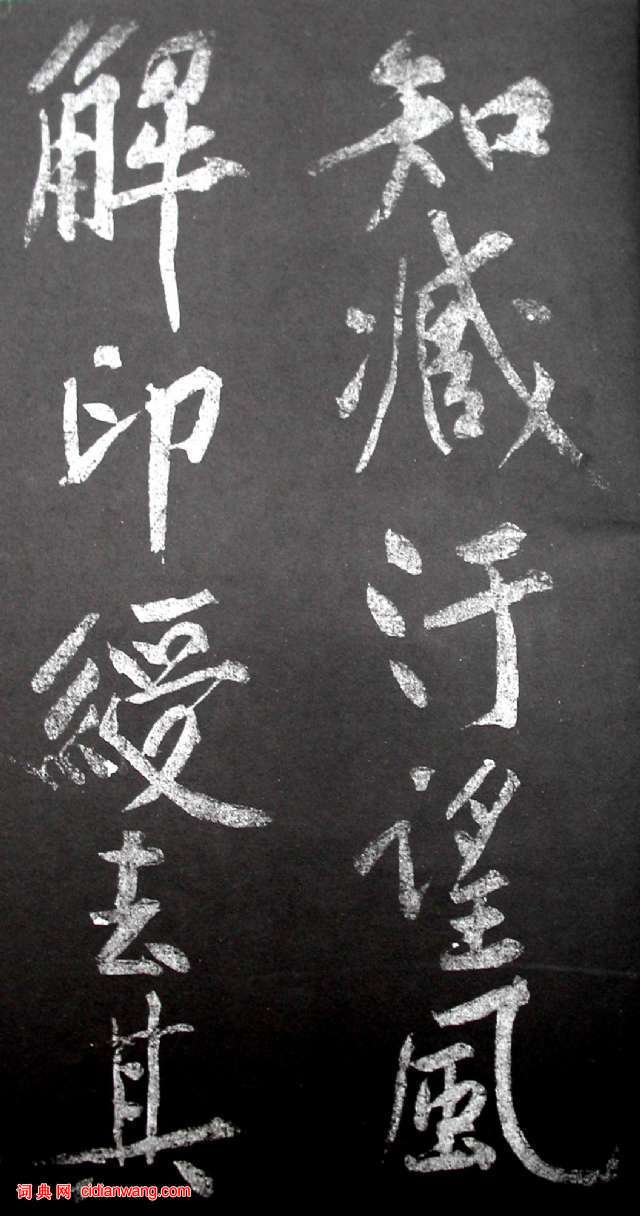 知臧汙望風
解印綬去其
词典网 cidianwang.com